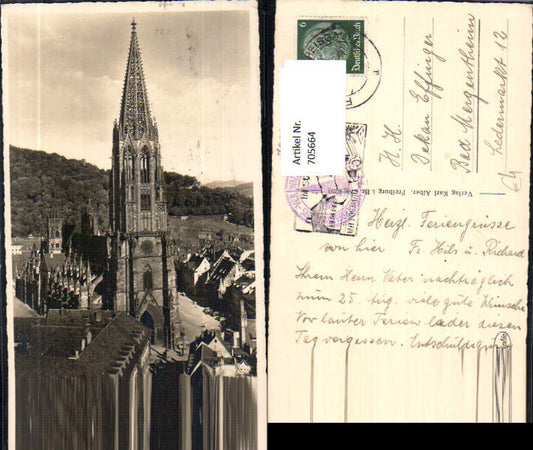 6
Deutsches Reich
Artikel Nr.
705664
H. H.
Dekan Effinger
Bad Mergentheim
Ledermarkt 12
Verlag Karl Alber, Freiburg i. Br.
Herzl. Feriengrüsse
von hier Fr. Hils u. Richard
Ihrem Herrn Vater nachträglich
zum 25. Aug. viele gute Wünsche
Vor lauter Ferien leider diesen
Tag vergessen. Entschuldigung